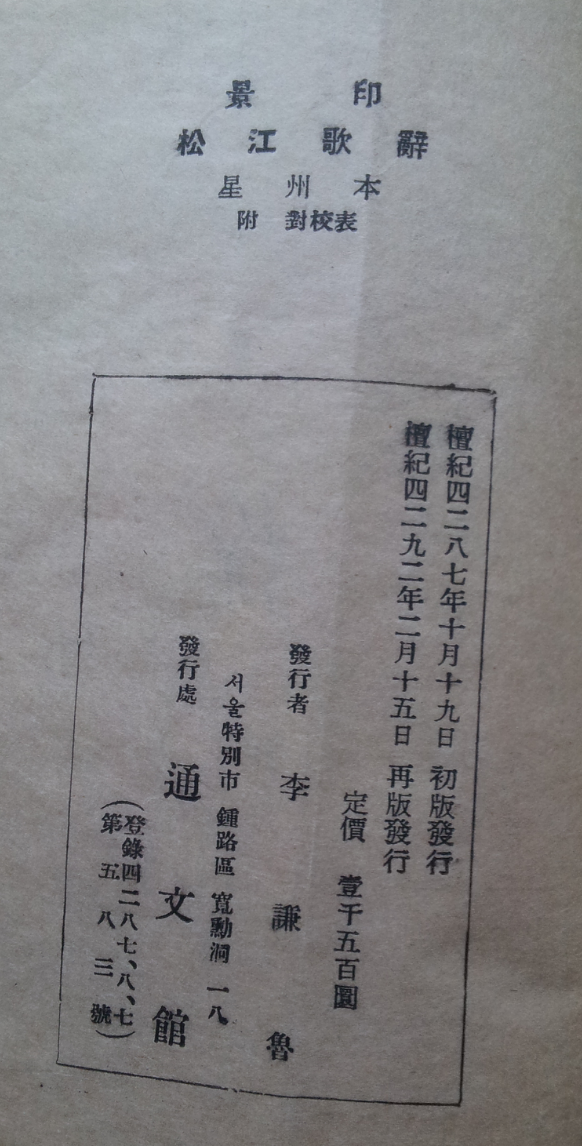 景印
松江歌辭
星州本
附 對校表
檀紀四二八七年十月十九日 初版發行
檀紀四二九二年二月十五日 再版發行
定價 壹千五百圜
發行者 李謙魯
서울特別市 鍾路區 寬勳洞 一八
發行處 通文館
(登錄四二八七、八、七
第五八三號)